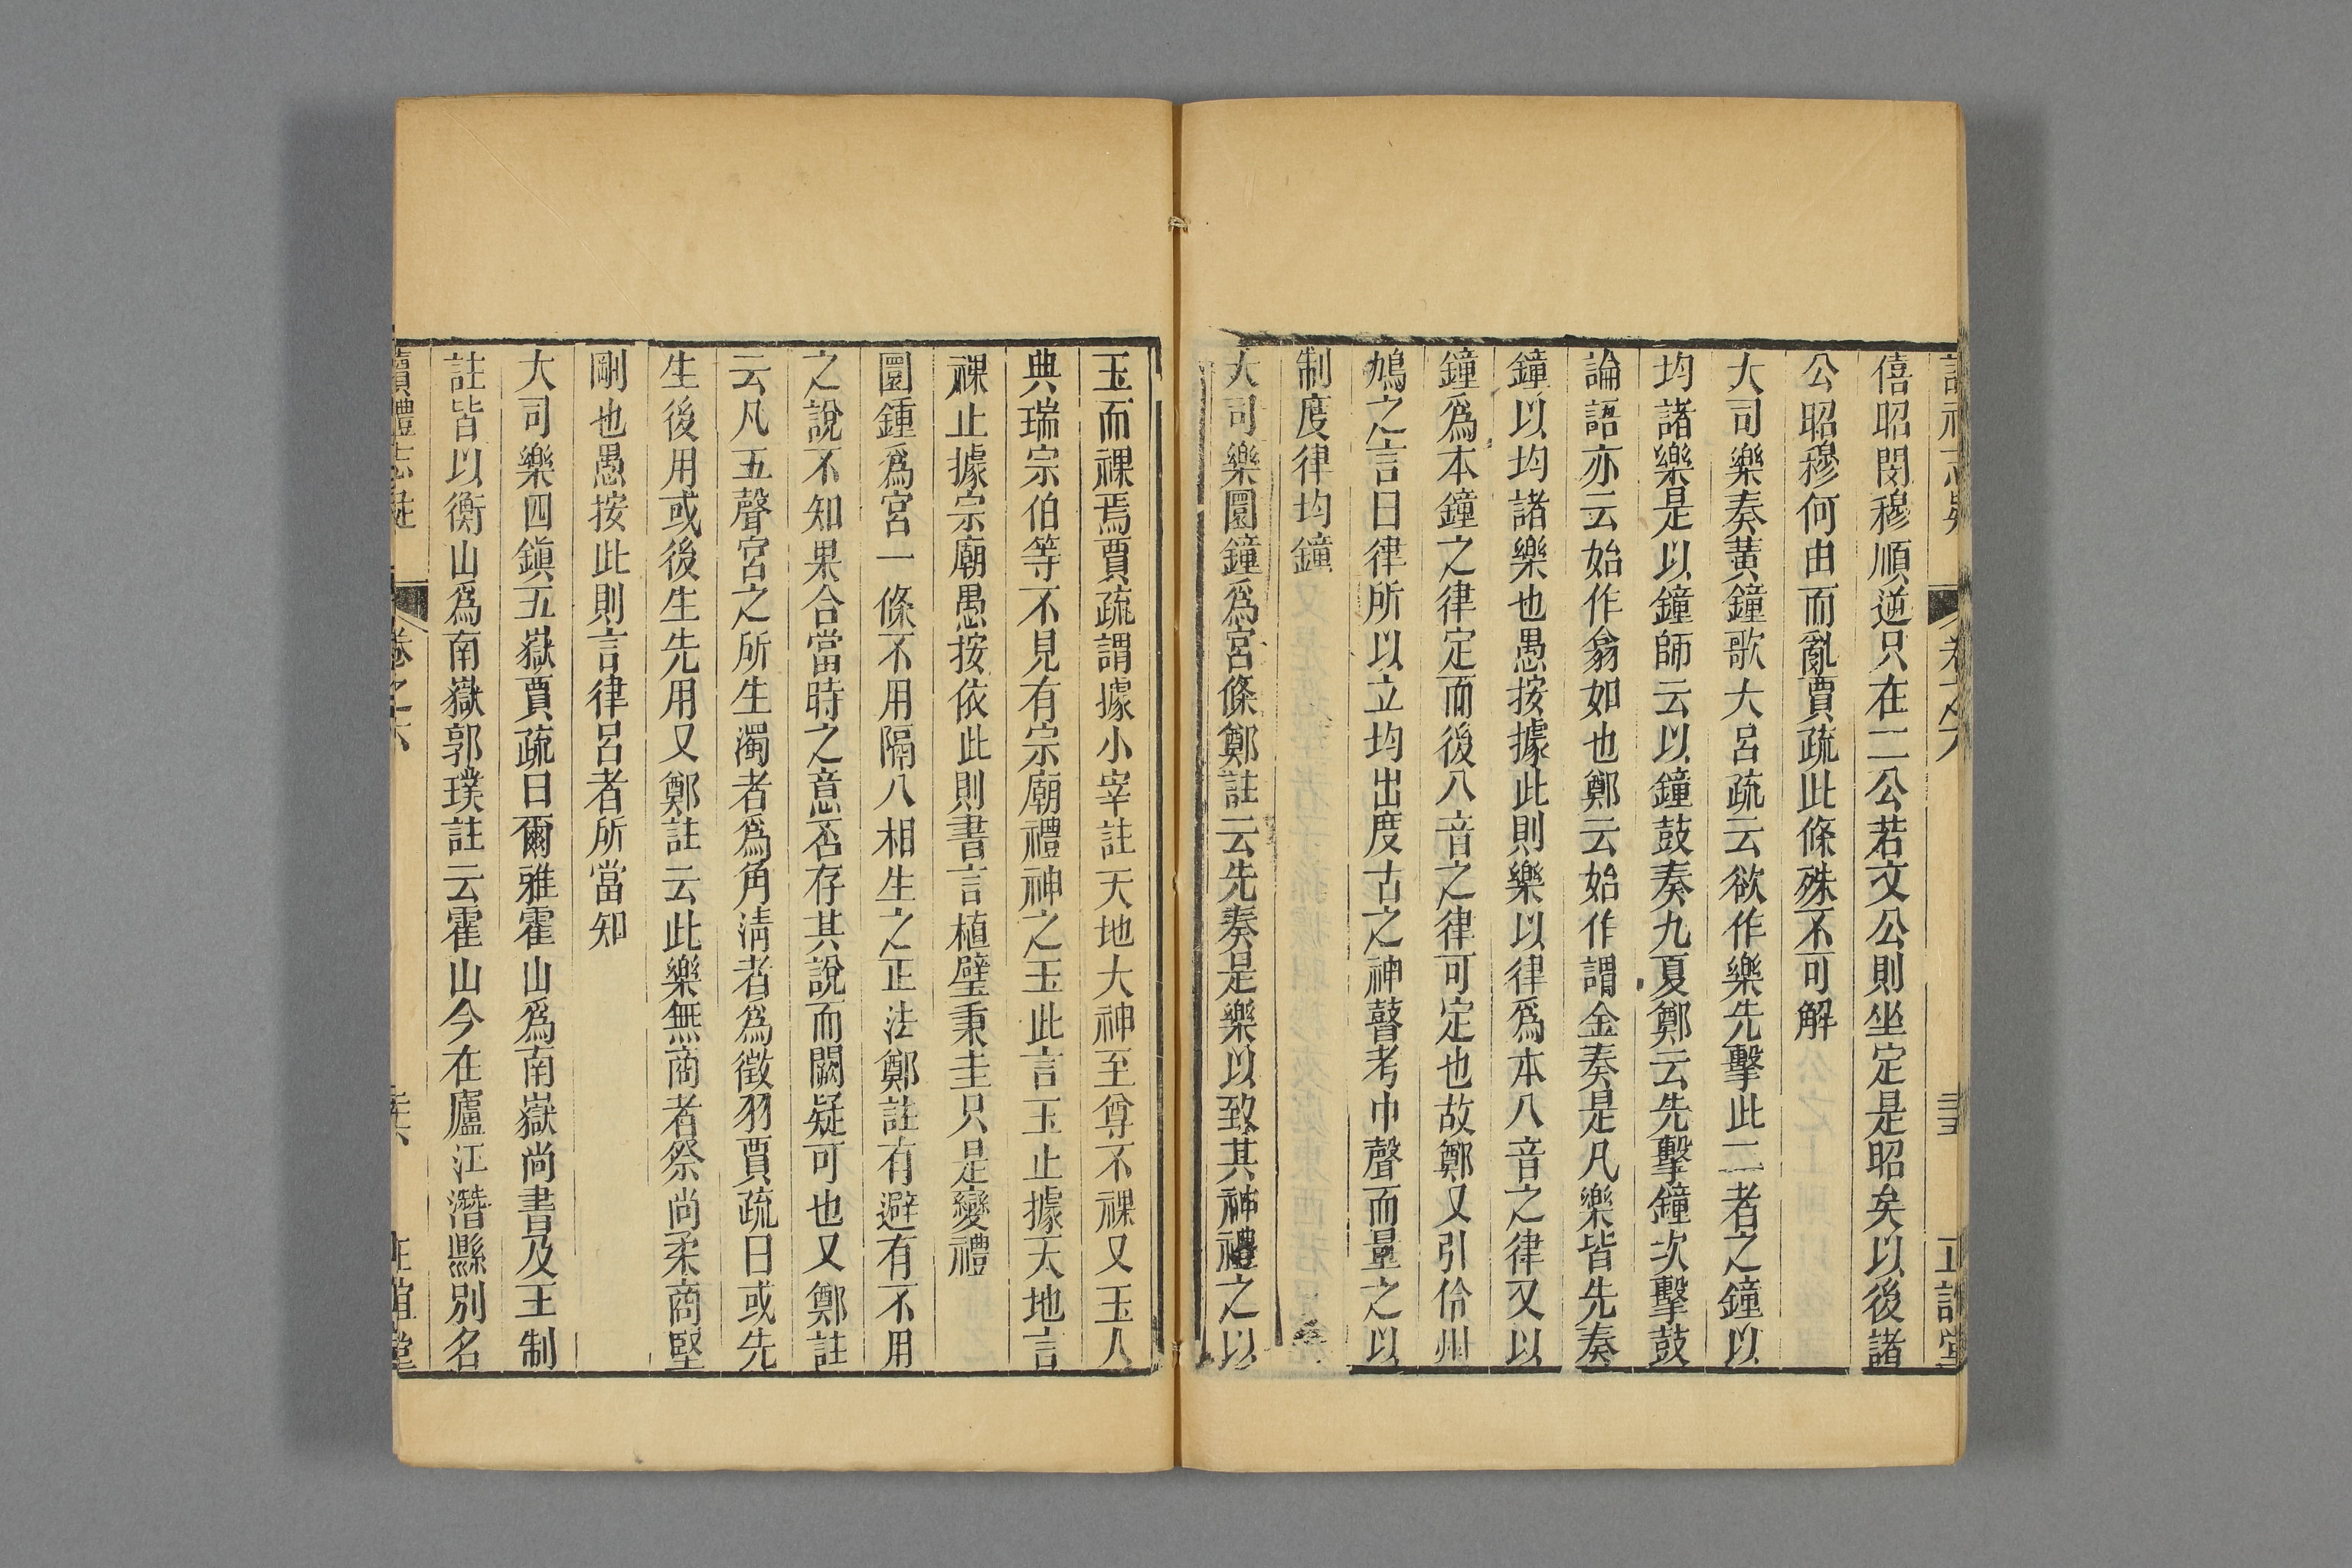 僖昭閔穆順逆只在二公若文公則坐定是昭矣以後諸
公昭穆何由而亂賈疏此條殊不可解
大司樂奏黃鐘歌大呂疏云欲作樂先擊此二者之鐘以
均諸樂是以鐘師云以鐘鼓奏九夏鄭云先擊鐘次擊鼓
論語亦云始作翕如也鄭云始作謂金奏是凡樂皆先奏
鐘以均諸樂也愚按據此則樂以律爲本八音之律又以
鐘爲本鐘之律定而後八音之律可定也故鄭又引伶州
鳩之言曰律所以立均出度古之神瞽考中聲而量之以
制度律均鐘
大司樂圜鐘爲宮條鄭註云先奏是樂以致其神禮之以
玉而祼焉賈疏謂據小宰註天地大神至尊不祼又玉人
典瑞宗伯等不見有宗廟禮神之玉此言玉止據天地言
祼止據宗廟愚按依此則書言植璧秉圭只是變禮
圜鍾爲宮一條不用隔八相生之正法鄭註有避有不用
之說不知果合當時之意否存其說而闕疑可也又鄭註
云凡五聲宮之所生濁者爲角清者爲徵羽賈疏曰或先
生後用或後生先用又鄭註云此樂無商者祭尚柔商堅
剛也愚按此則言律呂者所當知
大司樂四鎭五嶽賈疏曰爾雅霍山爲南嶽尚書及王制
註皆以衡山爲南嶽郭璞註云霍山今在廬江潛縣別名
讀禮志疑 卷之六 正誼堂